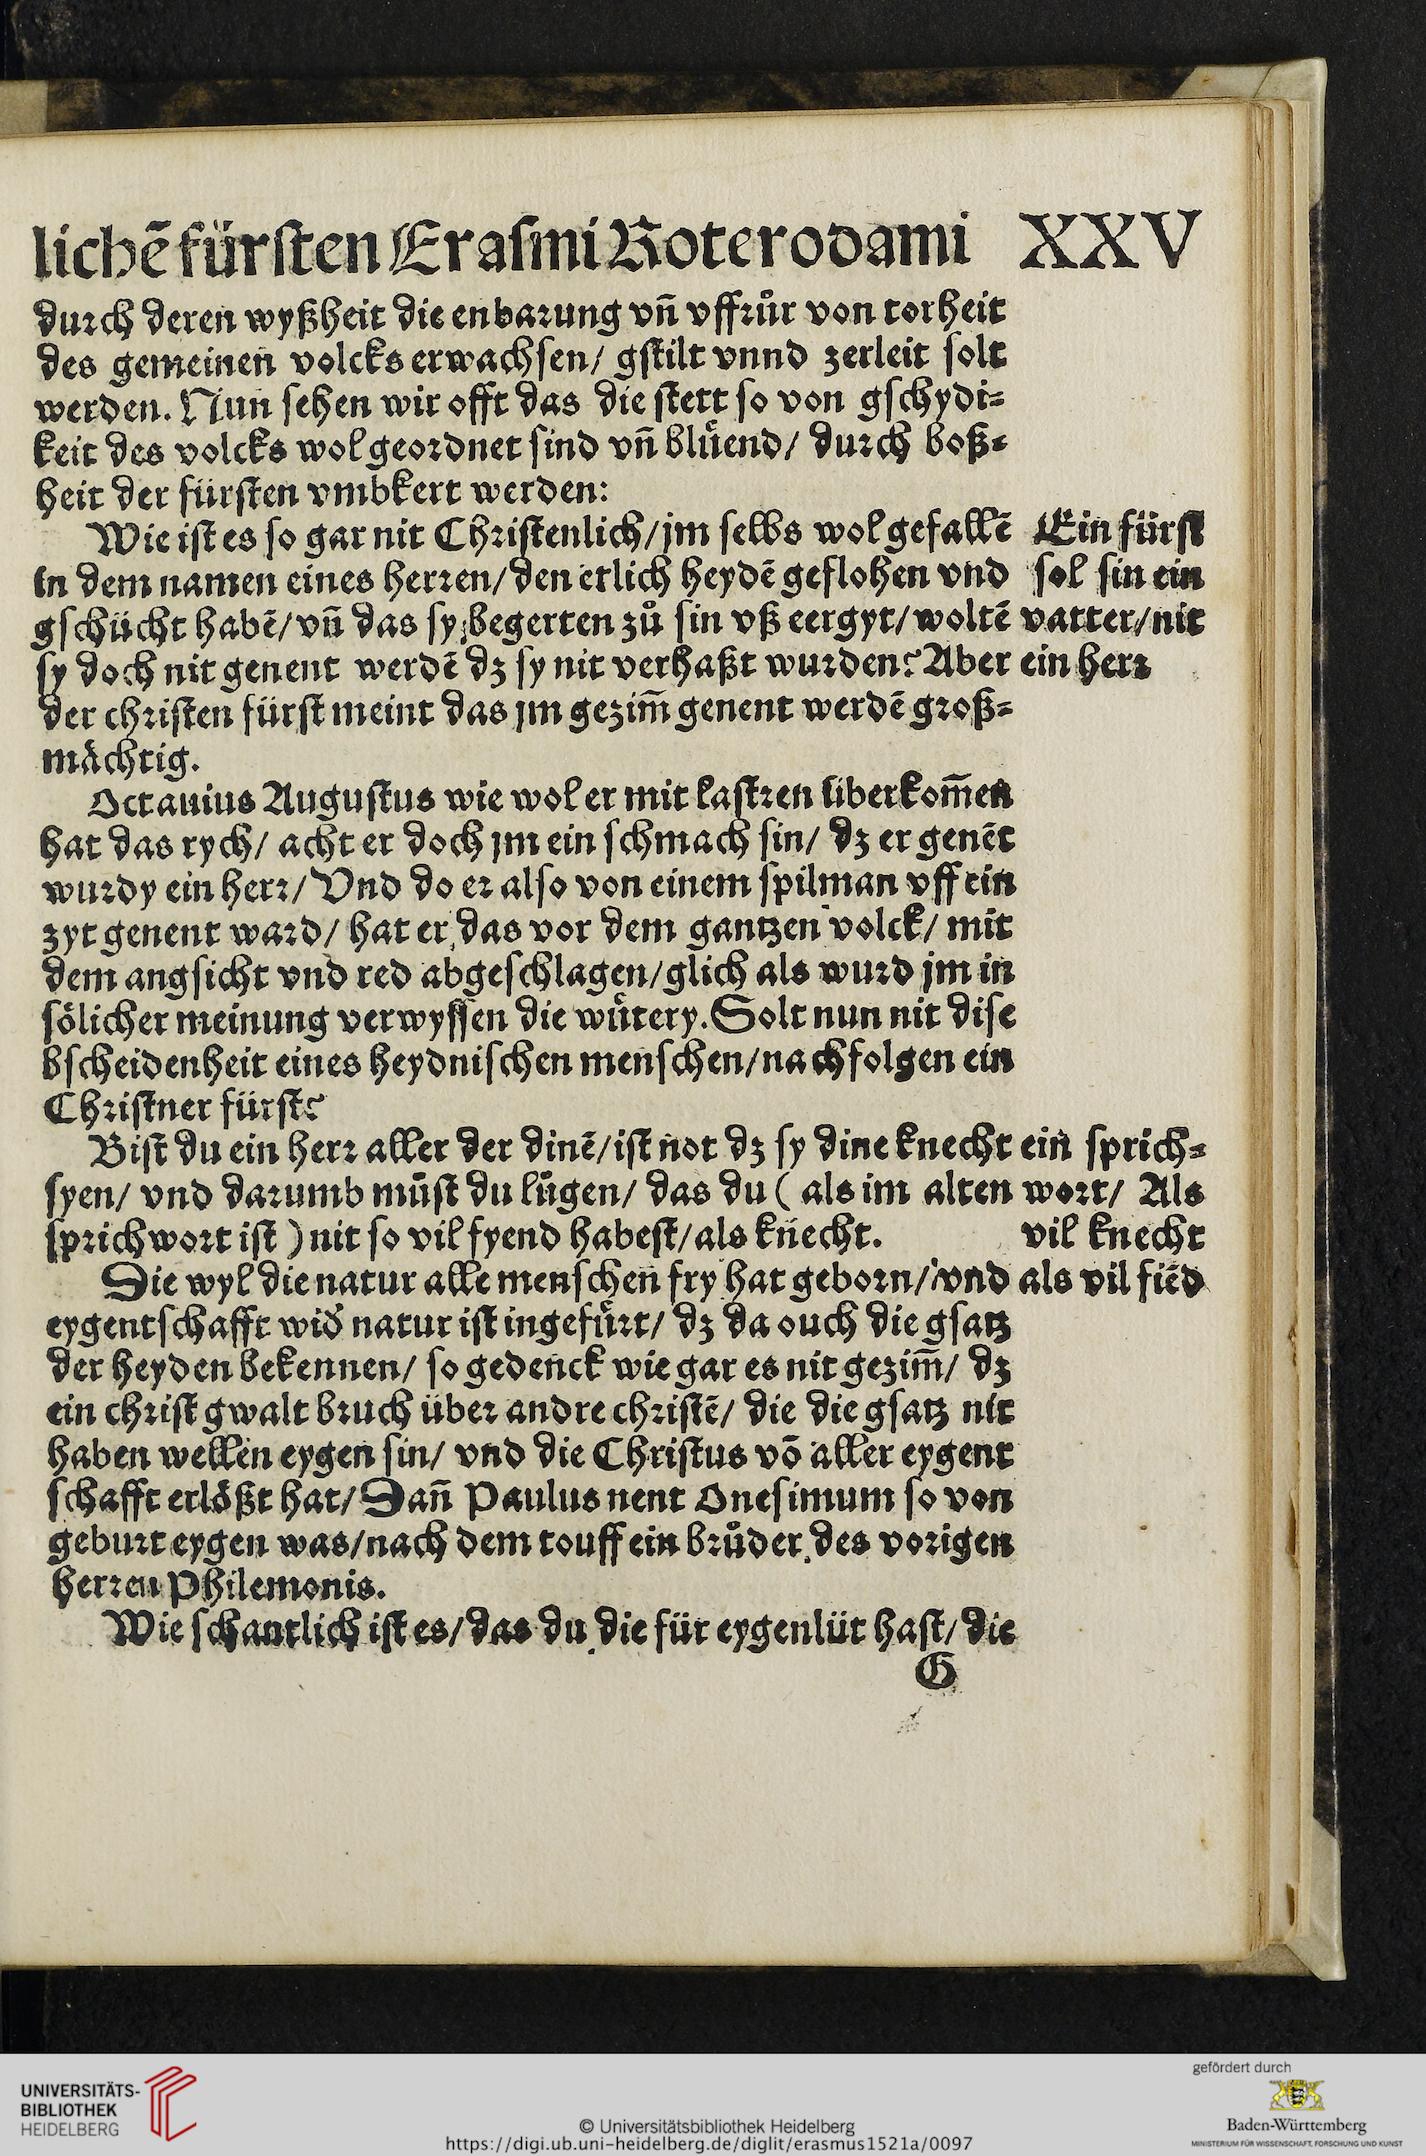 lichẽ fürsten Erasmi Roterodami XXV
durch deren wyßheit die enbarung vñ vffrůr von torheit
des gemeinen volcks erwachsen/ gstilt vnnd zerleit solt
werden. Nun sehen wir offt das die stett so von gschydi⸗
keit des volcks wol geordnet sind vñ blůend/ durch boß⸗
heit der fürsten vmbkert werden:
Wie ist es so gar nit Christenlich/ jm selbs wol gefallẽ
in dem namen eines herren/ den etlich heydẽ geflohen vnd
gschücht habẽ/ vñ das sy begerten zů sin vß eergyt/ woltẽ
sy doch nit genent werdẽ dz sy nit verhaßt wurden? Aber
der christen fürst meint das jm gezim̃ genent werdẽ groß⸗
mächtig.
Ein fürst
sol sin ein
vatter/ nit
ein herr
Octauius Augustus wie wol er mit lastren überkom̃en
hat das rych/ acht er doch jm ein schmach sin/ dz er genẽt
wurdy ein herr/ Vnd do er also von einem spilman vff ein
zyt genent ward/ hat er das vor dem gantzen volck/ mit
dem angsicht vnd red abgeschlagen/ glich als wurd jm in
sölicher meinung verwyssen die wůtery. Solt nun nit dise
bscheidenheit eines heydnischen menschen/ nachfolgen ein
Christner fürst?
Bist du ein herr aller der dinẽ/ ist not dz sy dine knecht
syen/ vnd darumb můst du lůgen/ das du ( als im alten
sprichwort ist ) nit so vil fyend habest/ als knecht.
ein sprich⸗
wort/ Als
vil knecht
als vil fiẽd
Die wyl die natur alle menschen fry hat geborn/ vnd
eygentschafft wid̕ natur ist ingefůrt/ dz da ouch die gsatz
der heyden bekennen/ so gedenck wie gar es nit gezim̃/ dz
ein christ gwalt bruch über andre christẽ/ die die gsatz nit
haben wellen eygen sin/ vnd die Christus võ aller eygent
schafft erlößt hat/ Dañ Paulus nent Onesimum so von
geburt eygen was/ nach dem touff ein brůder des vorigen
herren Philemonis.
Wie schantlich ist es/ das du die für eygenlüt hast/ die
G
UNIVERSITÄTS-
BIBLIOTHEK
HEIDELBERG
© Universitätsbibliothek Heidelberg
https://digi.ub.uni-heidelberg.de/diglit/erasmus1521a/0097
gefördert durch
Baden-Württemberg
MINISTERIUM FÜR WISSENSCHAFT, FORSCHUNG UND KUNST